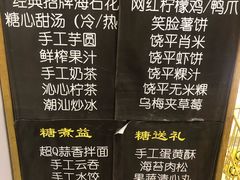 经典招牌海石花
糖心甜汤（冷/热
手工芋圆
鲜榨果汁
手工奶茶
沁心柠茶
潮汕炒冰
网红柠檬鸡/鸭爪
笑脸薯饼
饶平肖米
饶平虾饼
饶平粿汁
饶平无米粿
乌梅夹草莓
糖煮益
超Q蒜香拌面
手工云吞
手工水饺
糖送礼
手工蛋黄酥
海苔肉松
果蔬清心丸